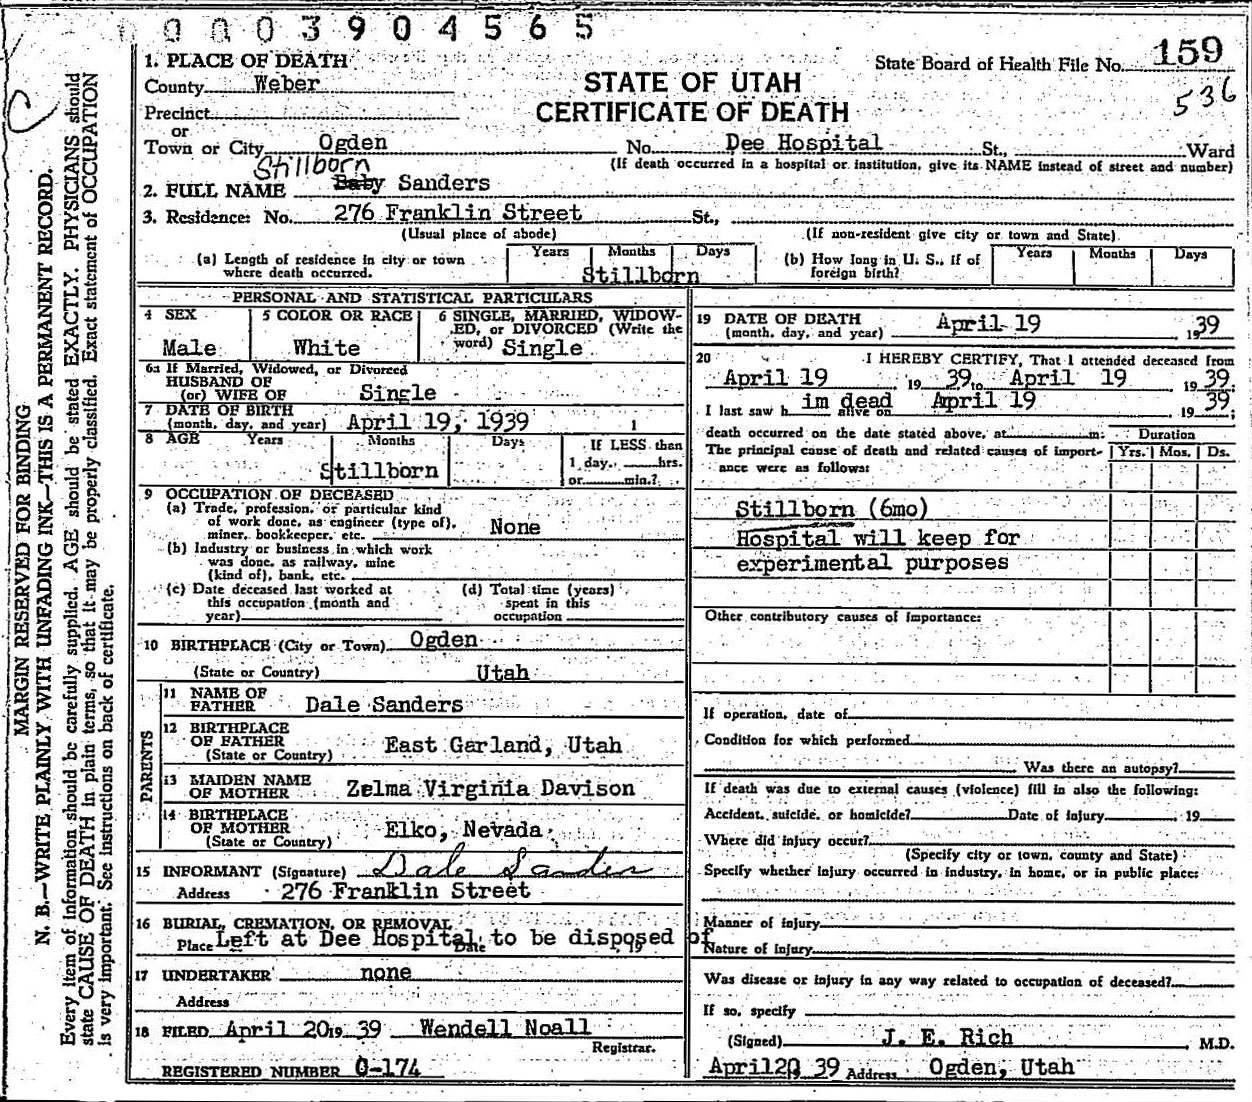 0003904565
1. PLACE OF DEATH
State Board of Health File No. 159
County Weber
STATE OF UTAH
536
Precinct
CERTIFICATE OF DEATH
or
Town or City Ogden No. Dee Hospital St., Ward
(If death occurred in a hospital or institution, give its NAME instead of street and number)
Stillborn
2. FULL NAME Baby Sanders
3. Residence: No. 276 Franklin Street St.,
(Usual place of abode) (If non-resident give city or town and State)
(a) Length of residence in city or town where death occurred. Years Months Days
Stillborn
(b) How long in U. S., if of foreign birth? Years Months Days
PERSONAL AND STATISTICAL PARTICULARS
4 SEX Male
5 COLOR OR RACE White
6 SINGLE, MARRIED, WIDOW-
ED, or DIVORCED (Write the
word) Single
6a If Married, Widowed, or Divorced
HUSBAND OF
(or) WIFE OF Single
7 DATE OF BIRTH
(month, day, and year) April 19, 1939
8 AGE Years Months Days If LESS than
1 day, hrs.
or min.?
Stillborn
9 OCCUPATION OF DECEASED
(a) Trade, profession, or particular kind
of work done, as engineer (type of),
miner, bookkeeper, etc. None
(b) Industry or business in which work
was done, as railway, mine
(kind of), bank, etc.
(c) Date deceased last worked at
this occupation (month and
year)
(d) Total time (years)
spent in this
occupation
10 BIRTHPLACE (City or Town) Ogden
(State or Country) Utah
PARENTS
11 NAME OF
FATHER Dale Sanders
12 BIRTHPLACE
OF FATHER
(State or Country) East Garland, Utah
13 MAIDEN NAME
OF MOTHER Zelma Virginia Davison
14 BIRTHPLACE
OF MOTHER
(State or Country) Elko, Nevada
15 INFORMANT (Signature) Dale Sanders
Address 276 Franklin Street
16 BURIAL, CREMATION, OR REMOVAL
Place Left at Dee Hospital to be disposed of
Date 19
17 UNDERTAKER none
Address
18 FILED April 20 19 39 Wendell Noall
Registrar.
REGISTERED NUMBER 0-174
19 DATE OF DEATH
(month, day, and year) April 19 1939
20 I HEREBY CERTIFY, That I attended deceased from
April 19 1939 to April 19 1939.
I last saw him dead alive on April 19 1939;
death occurred on the date stated above, at m.
The principal cause of death and related causes of import-
ance were as follows:
Duration
Yrs. Mos. Ds.
Stillborn (6mo)
Hospital will keep for
experimental purposes
Other contributory causes of importance:
If operation, date of
Condition for which performed
Was there an autopsy?
If death was due to external causes (violence) fill in also the following:
Accident, suicide, or homicide? Date of injury , 19
Where did injury occur?
(Specify city or town, county and State)
Specify whether injury occurred in industry, in home, or in public place:
Manner of injury
Nature of injury
Was disease or injury in any way related to occupation of deceased?
If so, specify
(Signed) J. E. Rich , M.D.
April 20 39 Address Ogden, Utah
MARGIN RESERVED FOR BINDING
N. B.—WRITE PLAINLY WITH UNFADING INK—THIS IS A PERMANENT RECORD.
Every item of information should be carefully supplied. AGE should be stated EXACTLY. PHYSICIANS should
state CAUSE OF DEATH in plain terms, so that it may be properly classified. Exact statement of OCCUPATION
is very important. See instructions on back of certificate.
C